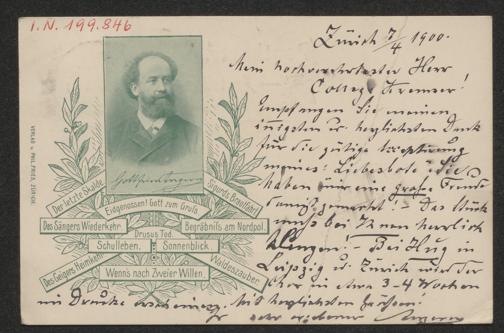 I.N. 199.846
Zürich 7/4 1900.
Mein hochverehrtester Herr
College Kremser!
Empfangen Sie meinen
innigsten u. herzlichsten Dank
für die gütige
meines: Liebesbote. Sie
haben mir eine große Freude
damit gemacht! - Das Stück
muß bei Ihnen herrlich
klingen! - Bei Hug in
Leipzig u. Zürich wird der
Chor in etwa 3-4 Wochen
im Drucke erscheinen. Mit herzlichsten Grüßen!
Ihr sehr ergebener
VERLAG v. PHIL. FRIES, ZÜRICH.
Der letzte Skalde
Eidgenossen! Gott zum Gruß.
Sigurds Brautfahrt
Des Sängers Wiederkehr.
Begräbniß am Nordpol.
Drusus Tod.
Schulleben.
Sonnenblick.
Des Geigers Heimkehr
Waldeszauber.
Wenn's nach Zweier Willen.